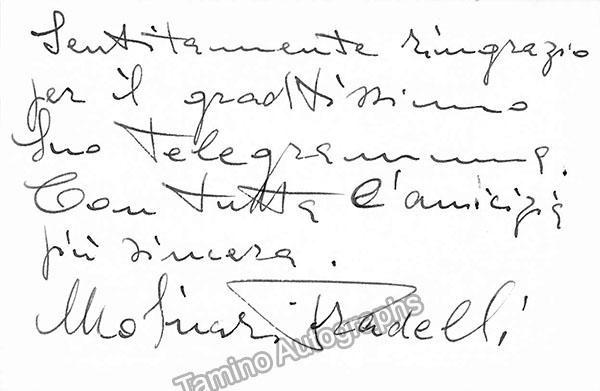 Sentitamente ringrazio
per il graditissimo
Suo telegramma.
Con tutta l'amicizia
più sincera.
Molinari Pradelli
Tamino Autographs